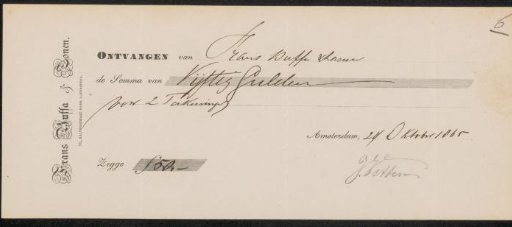 6
Frans Buffa & Zonen.
ONTVANGEN van Frans Buffa & Zonen
de Somma van Vijftig Gulden
voor 2 Teekeningen
Amsterdam, 24 Oktober 1865.
Zegge f 50,-